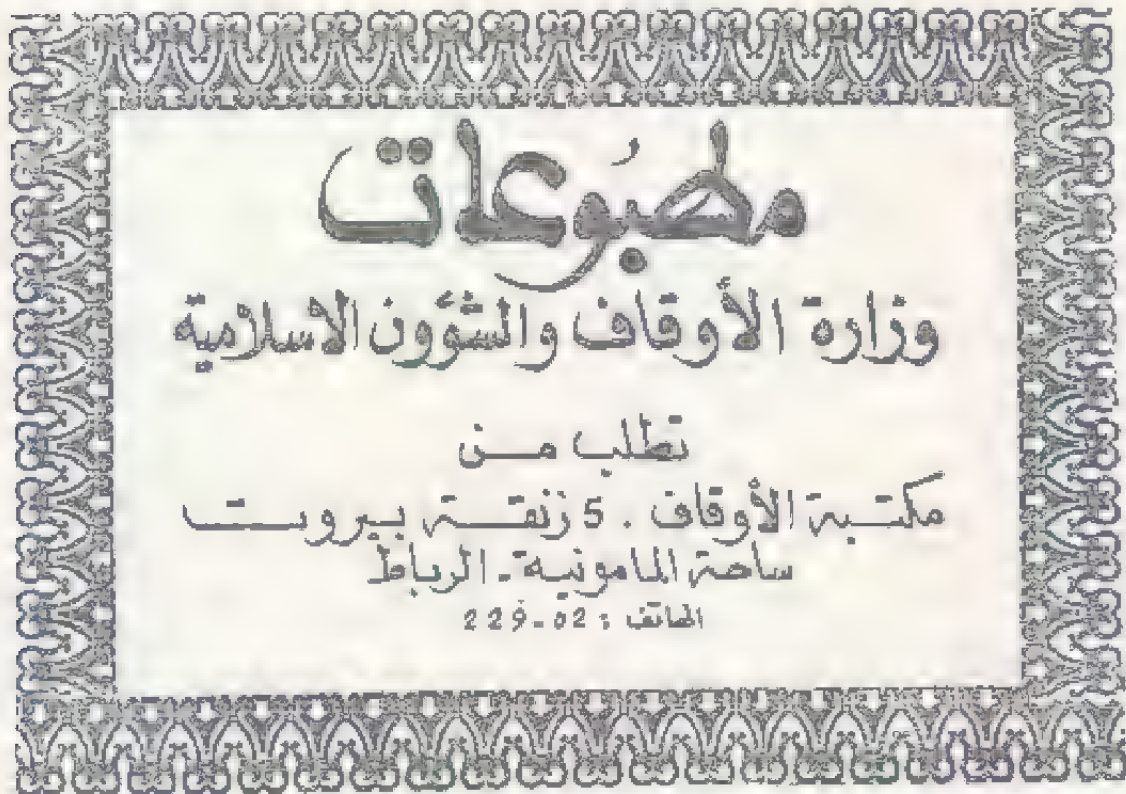 مطبُوعات
وزارة الأوقاف والشؤون الاسلامية
تطلب من
مكتبة الأوقاف . 5 زنقة بيروت
ساحة المامونية - الرباط
الهاتف : 02-229